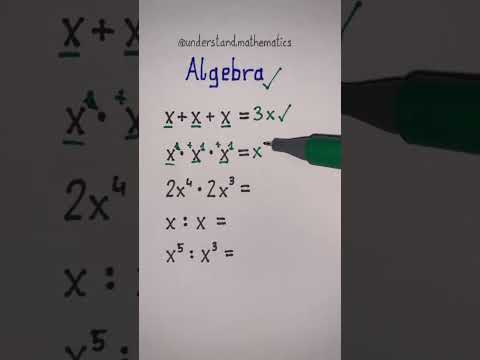 @understand.mathematics
Algebra ✓
x + x + x = 3x ✓
x¹ · ⁺x¹ · ⁺x¹ = x
2x⁴ · 2x³ =
x : x =
x⁵ : x³ =